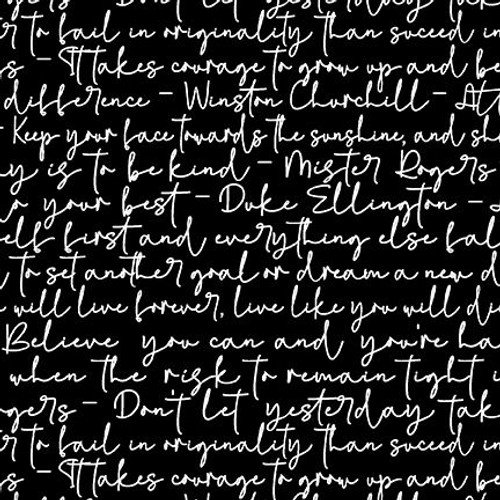 Don't let yesterday tak
r to fail in originality than suceed in
rs - It takes courage to grow up and be
difference - Winston Churchill - At
Keep your face towards the sunshine, and sh
y is to be kind - Mister Rogers
o your best - Duke Ellington -
elf first and everything else fal
to set another goal or dream a new d
will live forever, live like you will di
Believe you can and you're ha
when the risk to remain tight i
gers - Don't let yesterday tak
r to fail in originality than suceed in
rs - It takes courage to grow up and be
difference - Winston Churchill - At